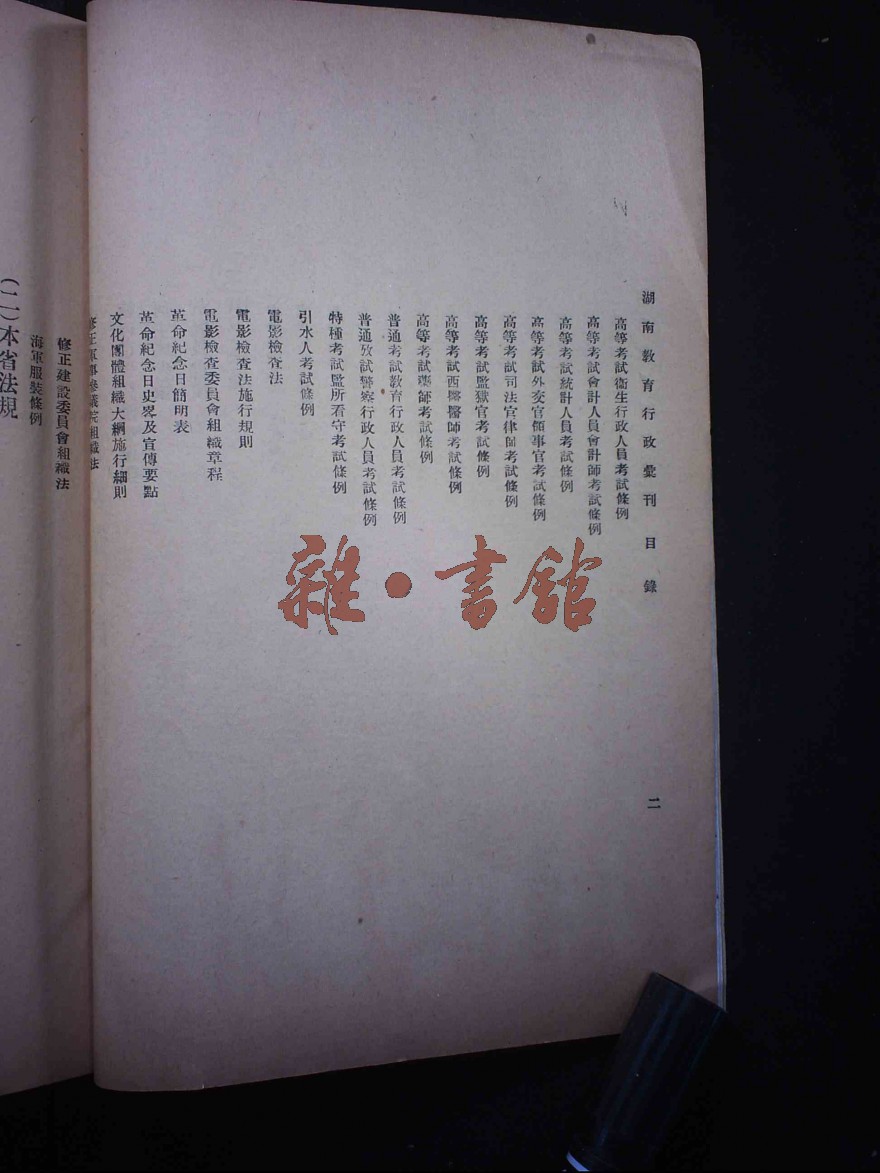 湖南教育行政彙刊 目錄 二
高等考試衞生行政人員考試條例
高等考試會計人員會計師考試條例
高等考試統計人員考試條例
高等考試外交官領事官考試條例
高等考試司法官律師考試條例
高等考試監獄官考試條例
高等考試西醫醫師考試條例
高等考試藥師考試條例
普通考試教育行政人員考試條例
普通攷試警察行政人員考試條例
特種考試監所看守考試條例
引水人考試條例
電影檢查法
電影檢查法施行規則
電影檢查委員會組織章程
革命紀念日簡明表
革命紀念日史畧及宣傳要點
文化團體組織大綱施行細則
修正軍事參議院組織法
修正建設委員會組織法
海軍服裝條例
(二)本省法規
雜·書館